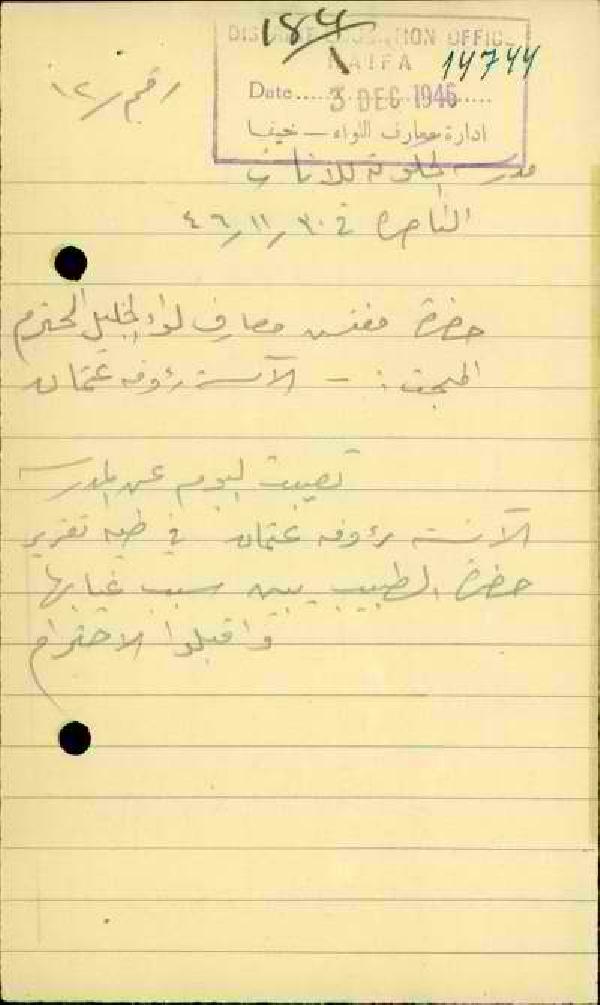 184
DISTRICT EDUCATION OFFICE
HAIFA
14744
Date..... 3 DEC 1946.....
ادارة معارف اللواء - حيفا
رقم / ١٢
مدرسة الحكومة للاناث
الناصرة في ٣٠/١١/٤٦
حضرة مفتش معارف لواء الجليل المحترم
المبحث :- الآنسة رؤوفه عثمان
تغيبت اليوم عن المدرسة
الآنسة رؤوفه عثمان في طيه تقرير
حضرة الطبيب يبين سبب غيابها
واقبلوا الاحترام